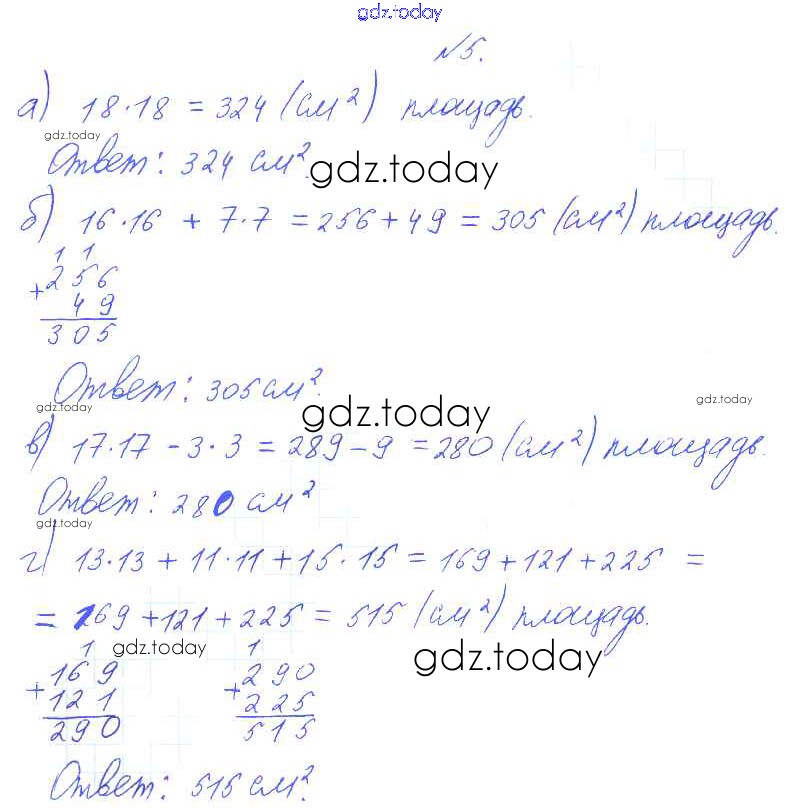 gdz.today
№5.
а) 18·18 = 324 (см²) площадь.
gdz.today
Ответ: 324 см².
gdz.today
б) 16·16 + 7·7 = 256 + 49 = 305 (см²) площадь.
1 1
+ 256
49
305
Ответ: 305 см².
gdz.today
gdz.today
gdz.today
в) 17·17 - 3·3 = 289 - 9 = 280 (см²) площадь.
Ответ: 280 см²
gdz.today
г) 13·13 + 11·11 + 15·15 = 169 + 121 + 225 =
= 169 + 121 + 225 = 515 (см²) площадь.
gdz.today
gdz.today
1 1
+ 169 + 290
121 225
290 515
Ответ: 515 см².